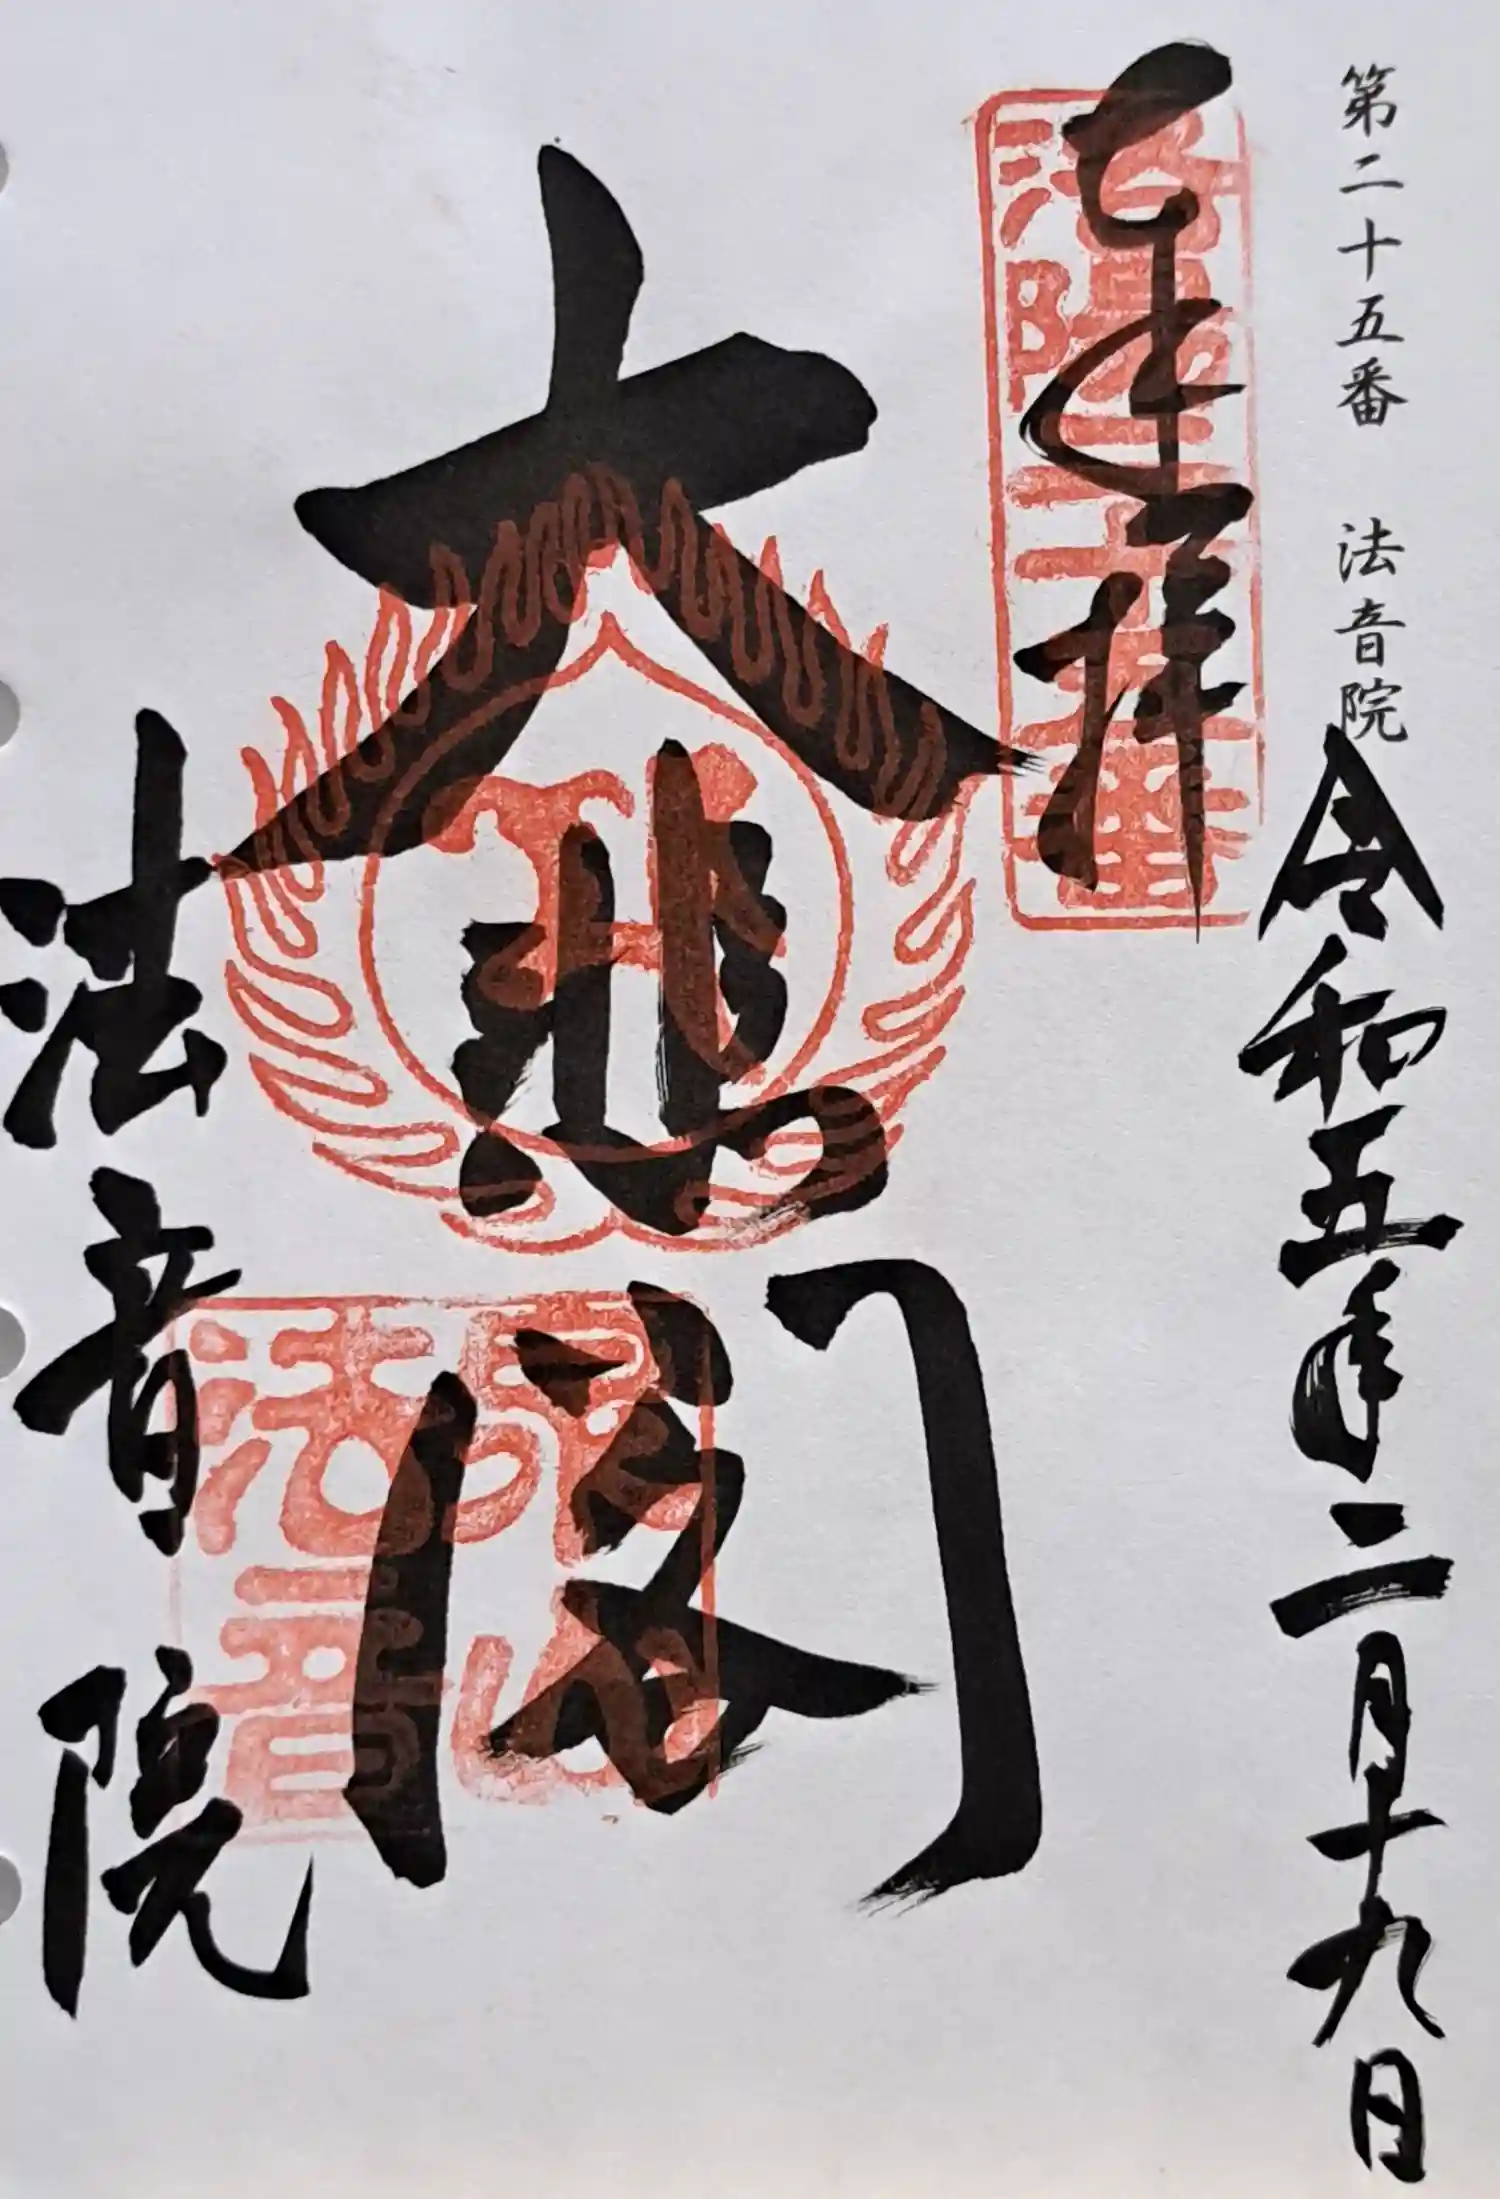 第二十五番 法音院
令和五年二月十九日
奉拝
洛陽二十五番
大悲閣
法音院